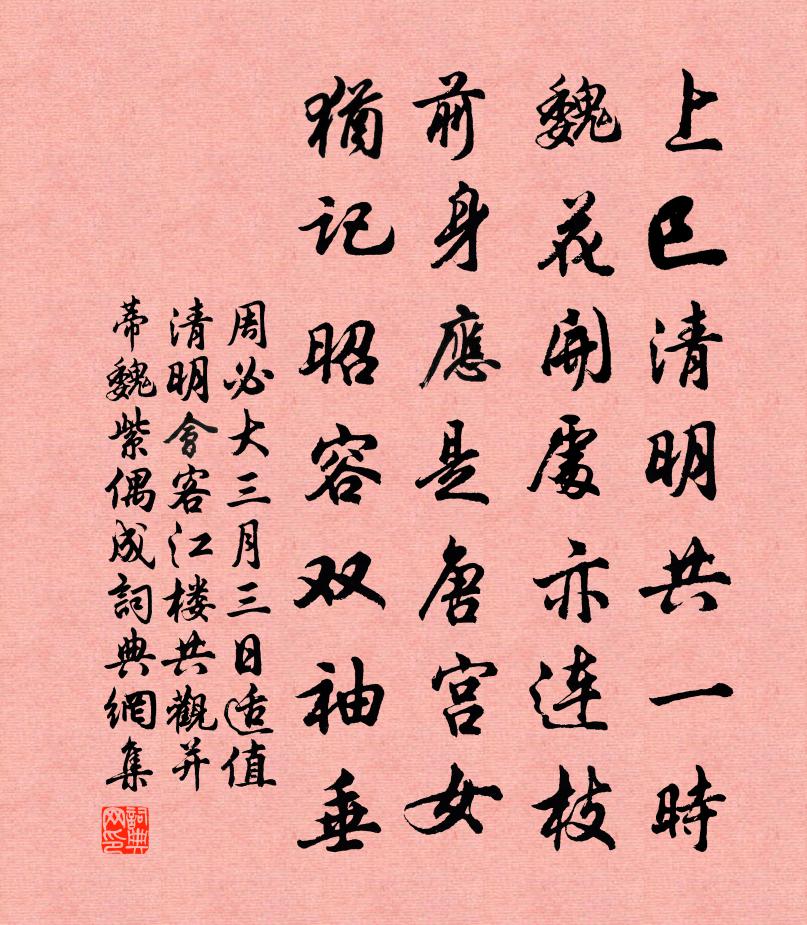 上巳清明共一時
魏花開處亦连枝
前身應是唐宫女
猶记昭容双袖垂
周必大三月三日适值
清明會客江楼共觀并
蒂魏紫偶成詞典網集
詞典网印